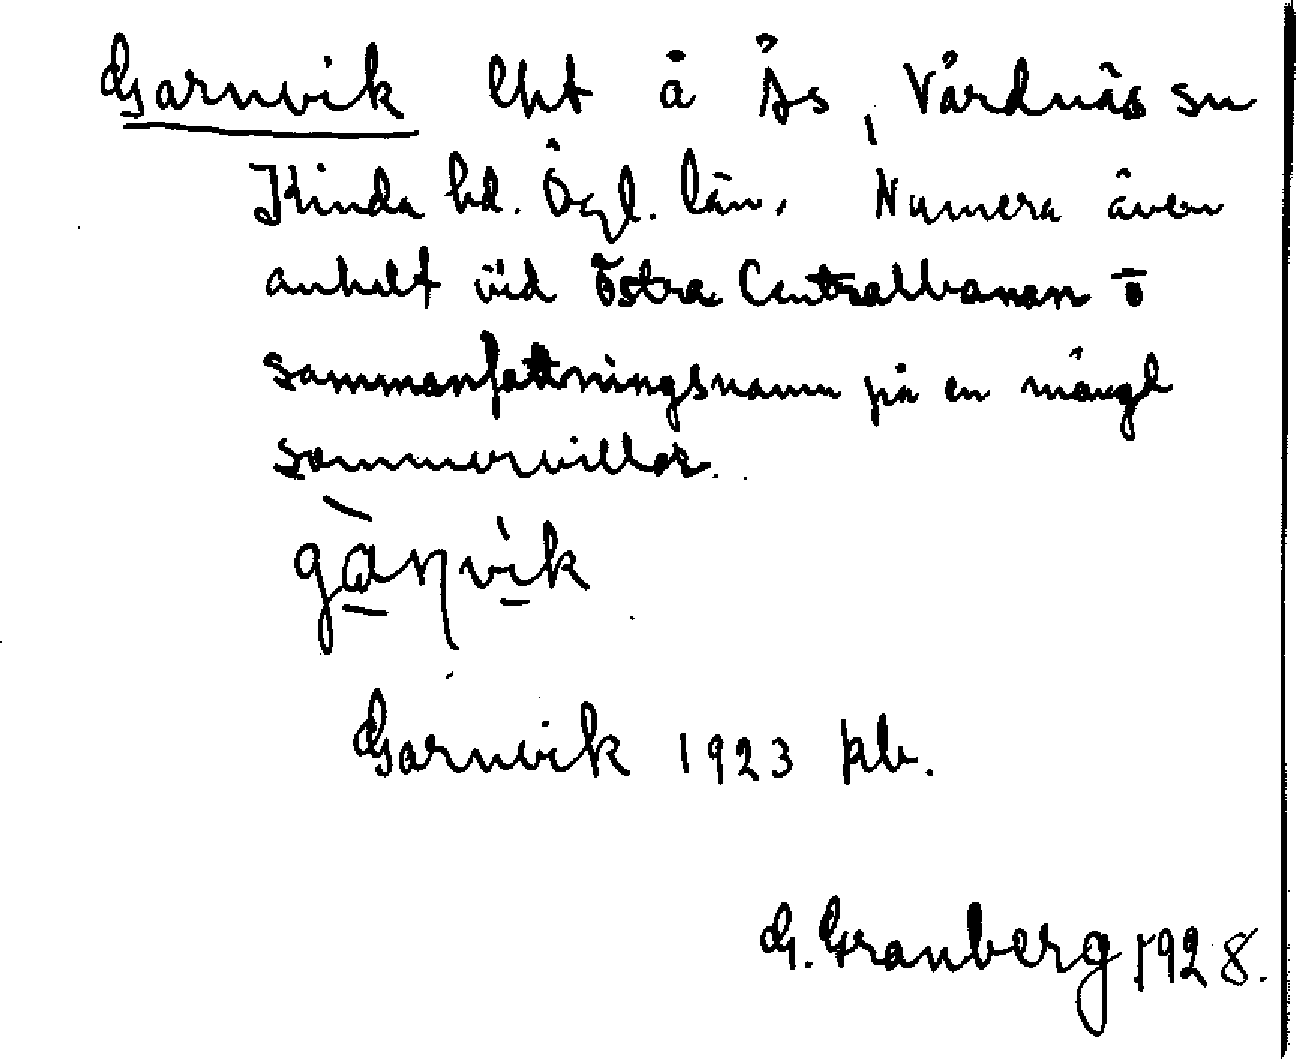 Garnvik lht å Ås, Vårdnäs sn
Kinda hd. Ögl. län. Numera även
anhalt vid Östra Centralbanan o
sammanfattningsnamn på en mängd
sommarvillor.
gànvìk
Garnvik 1923 kb.
G. Granberg 1928.